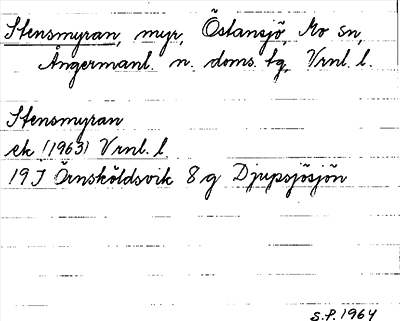 Stensmyran, myr, Östansjö, Mo sn,
Ångermanl. n. doms. tg, Vrnl. l.
Stensmyran
ek (1963) Vrnl. l.
19 J Örnsköldsvik 8 g Djupsjösjön
S.P. 1964